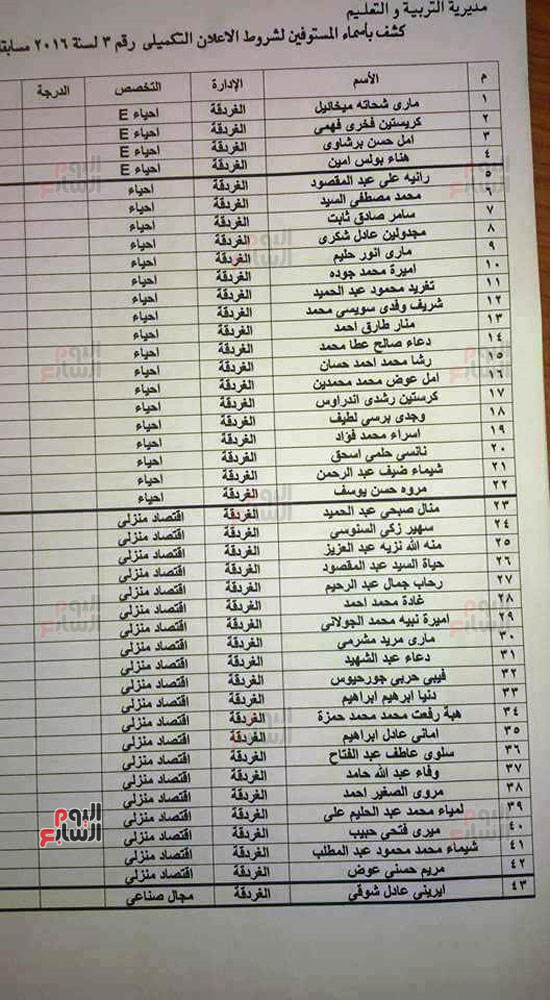 مديرية التربية و التعليم
كشف بأسماء المستوفين لشروط الاعلان التكميلى رقم ٣ لسنة ٢٠١٦
م الأسم الإدارة التخصص الدرجة
١ مارى شحاته ميخائيل الغردقة احياء E
٢ كريستين فخرى فهمى الغردقة احياء E
٣ امل حسن برشاوى الغردقة احياء E
٤ هناء بولس امين الغردقة احياء E
٥ رانيه على عبد المقصود الغردقة احياء
٦ محمد مصطفى السيد الغردقة احياء
٧ سامر صادق ثابت الغردقة احياء
٨ مجدولين عادل شكرى الغردقة احياء
٩ مارى انور حليم الغردقة احياء
١٠ اميرة محمد جوده الغردقة احياء
١١ تغريد محمود عبد الحميد الغردقة احياء
١٢ شريف وفدى سويسى محمد الغردقة احياء
١٣ منار طارق احمد الغردقة احياء
١٤ دعاء صالح عطا محمد الغردقة احياء
١٥ رشا محمد احمد حسان الغردقة احياء
١٦ امل عوض محمد محمدين الغردقة احياء
١٧ كرستين رشدى اندراوس الغردقة احياء
١٨ وجدى برسى لطيف الغردقة احياء
١٩ اسراء محمد فؤاد الغردقة احياء
٢٠ نانسى حلمى اسحق الغردقة احياء
٢١ شيماء ضيف عبد الرحمن الغردقة احياء
٢٢ مروه حسن يوسف الغردقة احياء
٢٣ منال صبحى عبد الحميد الغردقة اقتصاد منزلى
٢٤ سهير زكى السنوسى الغردقة اقتصاد منزلى
٢٥ منه الله نزيه عبد العزيز الغردقة اقتصاد منزلى
٢٦ حياة السيد عبد المقصود الغردقة اقتصاد منزلى
٢٧ رحاب جمال عبد الرحيم الغردقة اقتصاد منزلى
٢٨ غادة محمد احمد الغردقة اقتصاد منزلى
٢٩ اميرة نبيه محمد الجولانى الغردقة اقتصاد منزلى
٣٠ مارى مريد مشرمى الغردقة اقتصاد منزلى
٣١ دعاء عبد الشهيد الغردقة اقتصاد منزلى
٣٢ فيبى حربى جورجيوس الغردقة اقتصاد منزلى
٣٣ دنيا ابرهيم ابراهيم الغردقة اقتصاد منزلى
٣٤ هبة رفعت محمد محمد حمزة الغردقة اقتصاد منزلى
٣٥ امانى عادل ابراهيم الغردقة اقتصاد منزلى
٣٦ سلوى عاطف عبد الفتاح الغردقة اقتصاد منزلى
٣٧ وفاء عبد الله حامد الغردقة اقتصاد منزلى
٣٨ مروى الصغير احمد الغردقة اقتصاد منزلى
٣٩ لمياء محمد عبد الحليم على الغردقة اقتصاد منزلى
٤٠ ميرى فتحى حبيب الغردقة اقتصاد منزلى
٤١ شيماء محمد محمود عبد المطلب الغردقة اقتصاد منزلى
٤٢ مريم حسنى عوض الغردقة اقتصاد منزلى
٤٣ ايرينى عادل شوقى الغردقة مجال صناعى
اليوم السابع